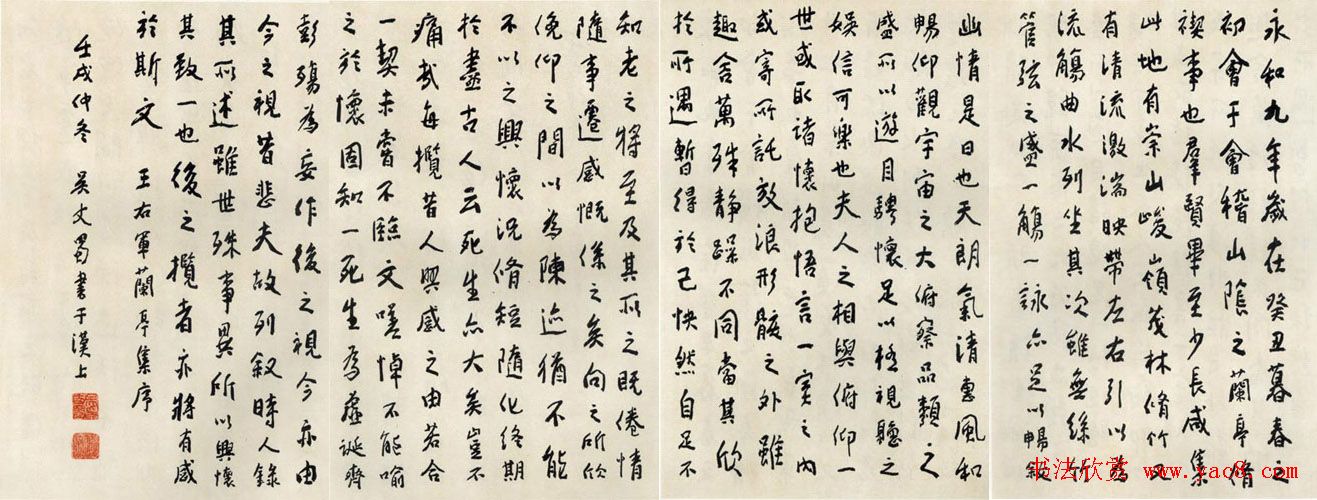 永和九年歲在癸丑暮春之
初會于會稽山陰之蘭亭脩
禊事也羣賢畢至少長咸集
此地有崇山峻嶺茂林脩竹又
有清流激湍映帶左右引以為
流觴曲水列坐其次雖無絲竹
管弦之盛一觴一詠亦足以暢敘
幽情是日也天朗氣清惠風和
暢仰觀宇宙之大俯察品類之
盛所以遊目騁懷足以極視聽之
娛信可樂也夫人之相與俯仰一
世或取諸懷抱悟言一室之內
或寄所託放浪形骸之外雖
趣舍萬殊靜躁不同當其欣
於所遇暫得於己快然自足不
知老之將至及其所之既倦情
隨事遷感慨係之矣向之所欣
俛仰之間以為陳迹猶不能
不以之興懷況脩短隨化終期
於盡古人云死生亦大矣豈不
痛哉每攬昔人興感之由若合
一契未嘗不臨文嗟悼不能喻
之於懷固知一死生為虛誕齊
彭殤為妄作後之視今亦由
今之視昔悲夫故列敘時人錄
其所述雖世殊事異所以興懷
其致一也後之攬者亦將有感
於斯文 王右軍蘭亭集序
壬戌仲冬 吳丈蜀書于漢上
书法欣赏 www.yac8.com